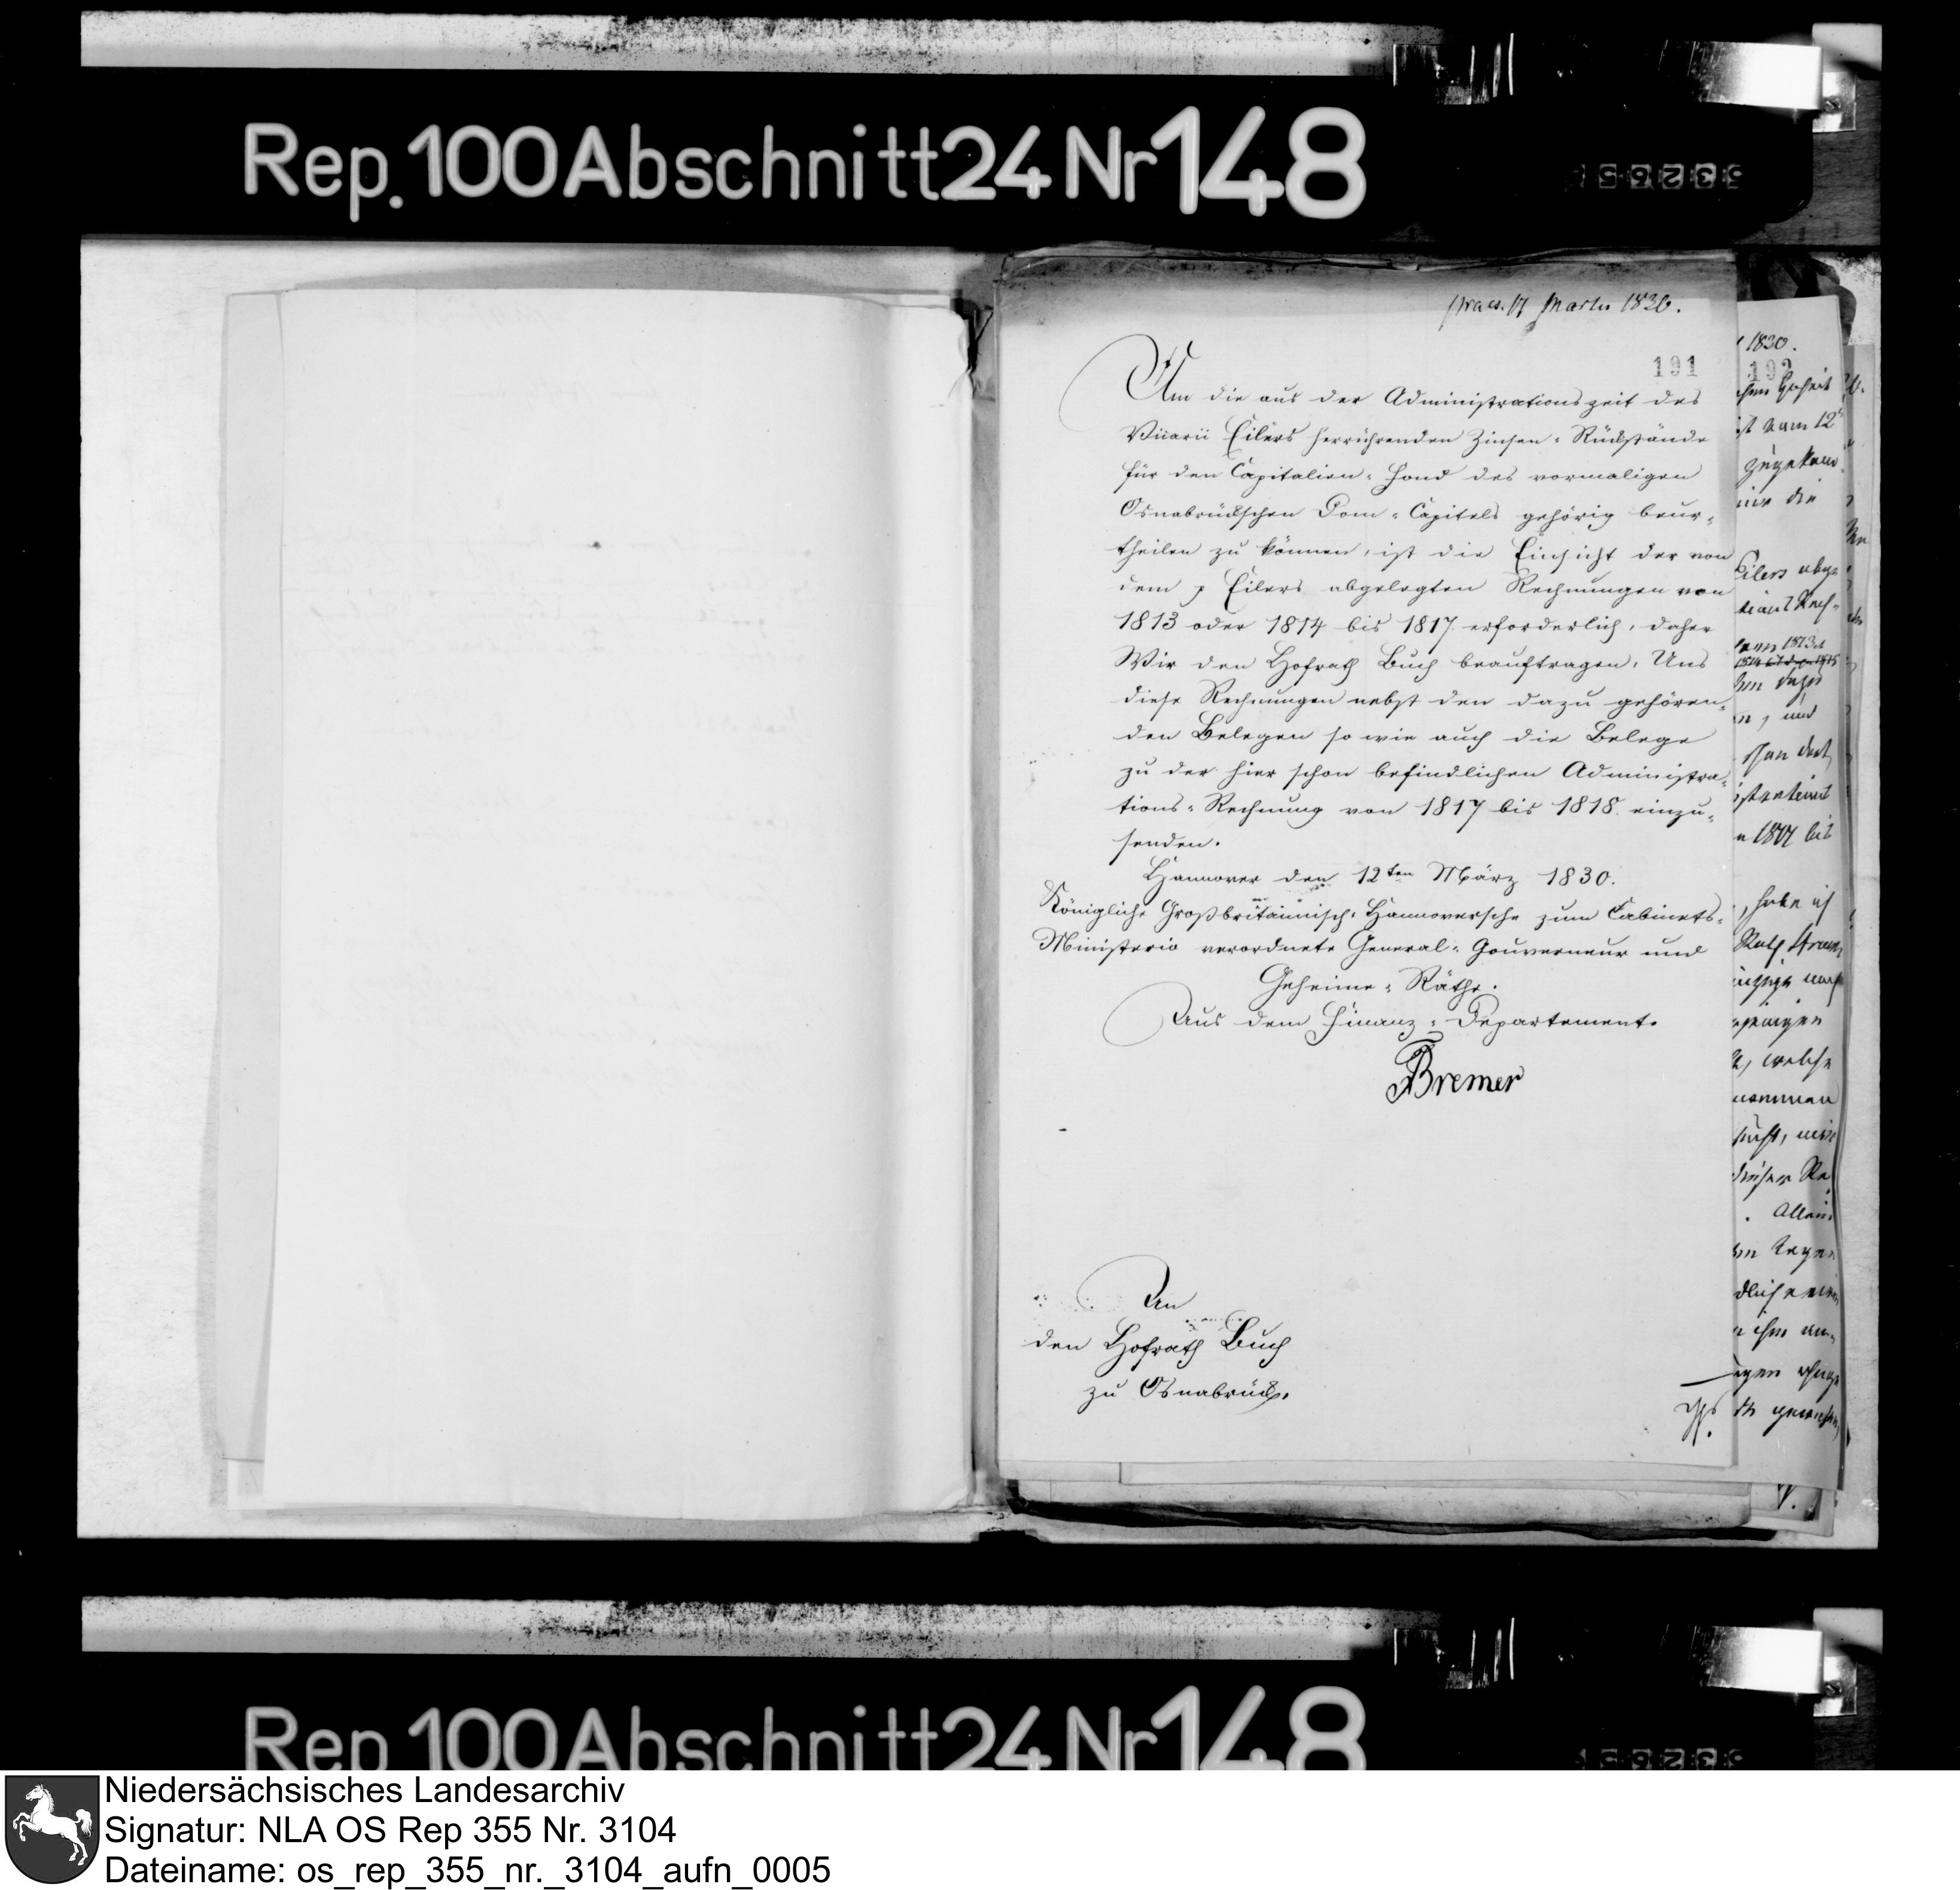 Rep. 100 Abschnitt 24 Nr 148
praes. 17 Martii 1830.
191
Um die aus der Administrationszeit des
Vicarii Eilers herrührenden Zinsen-Rückstände
für den Capitalien-Fond des vormaligen
Osnabrückschen Dom-Capitels gehörig beur-
theilen zu können, ist die Einsicht der von
dem p Eilers abgelegten Rechnungen von
1813 oder 1814 bis 1817 erforderlich, daher
Wir den Hofrath Buch beauftragen, Uns
diese Rechnungen nebst den dazu gehören-
den Belegen so wie auch die Belege
zu der hier schon befindlichen Administra-
tions-Rechnung von 1817 bis 1818. einzu-
senden.
Hannover den 12ten März 1830.
Königliche Großbritannisch-Hannoversche zum Cabinets-
Ministerio verordnete General-Gouverneur und
Geheime-Räthe.
Aus dem Finanz-Departement.
Bremer
An
den Hofrath Buch
zu Osnabrück.
1830.
192
Hoheit
ist vom 12
zugekom-
mir die
Eilers abge
dazu
und
1817 bis
habe ich
welche
Allein
Rep. 100 Abschnitt 24 Nr 148
Niedersächsisches Landesarchiv
Signatur: NLA OS Rep 355 Nr. 3104
Dateiname: os_rep_355_nr._3104_aufn_0005